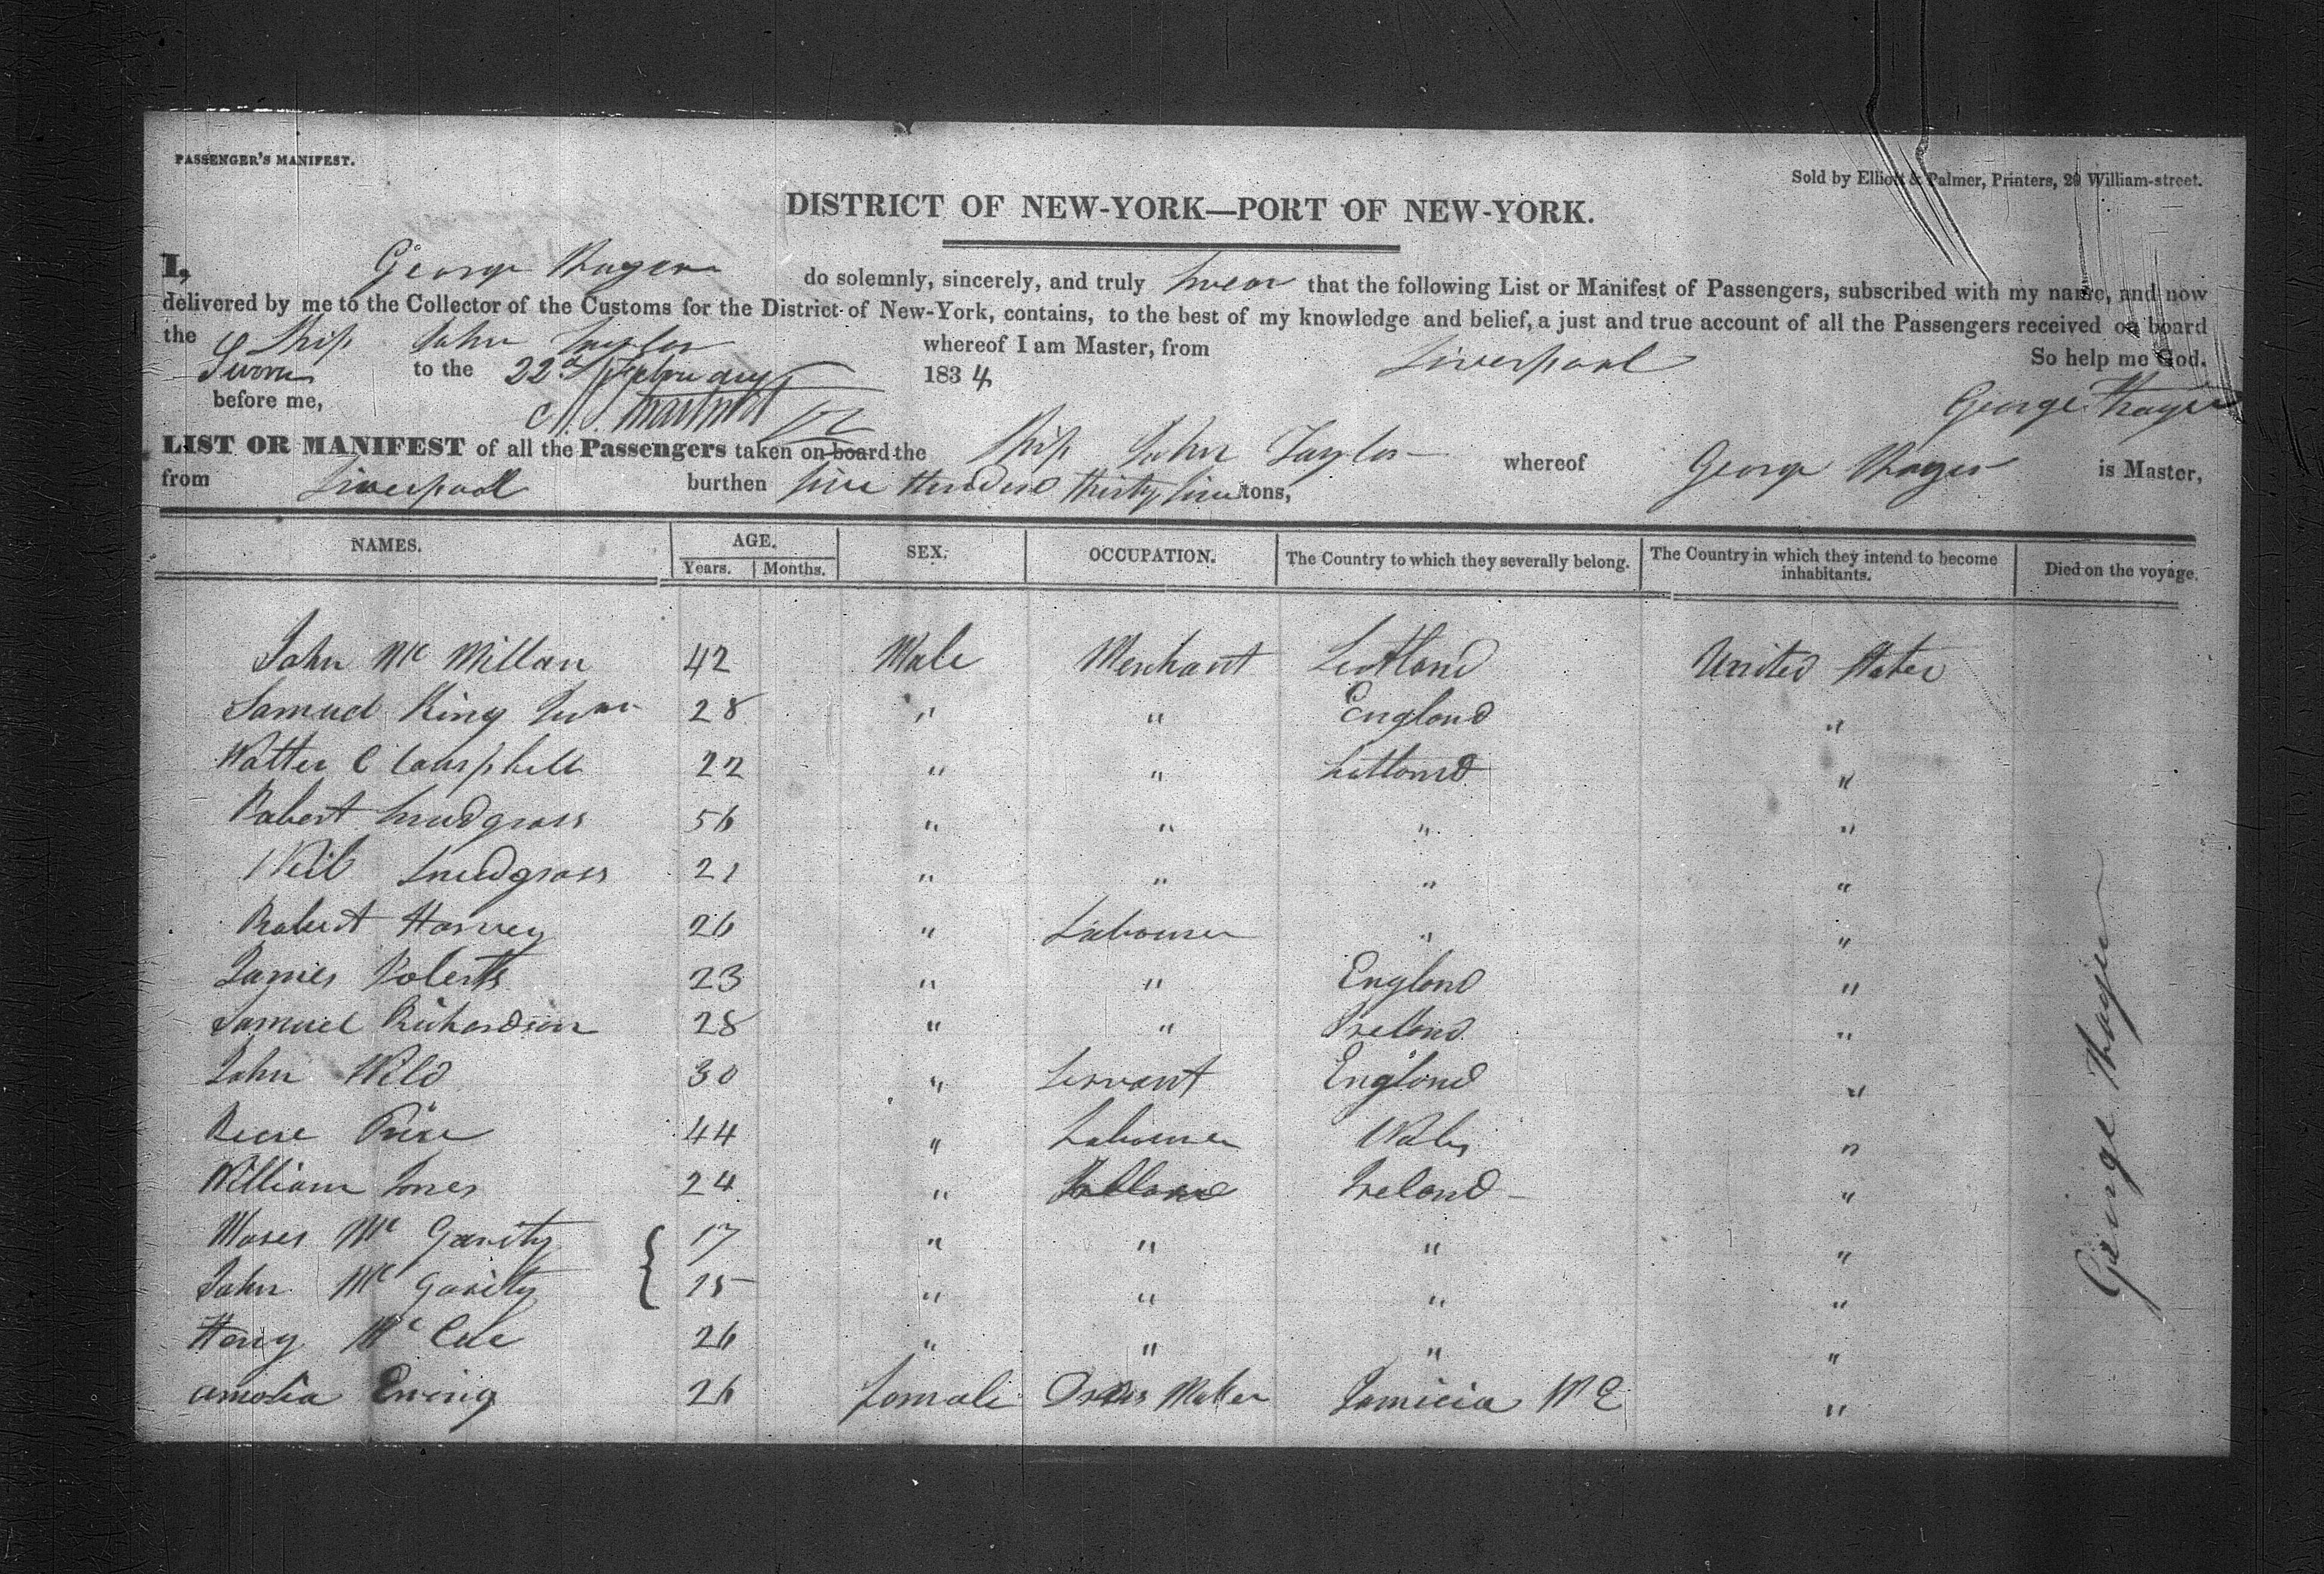 PASSENGER'S MANIFEST.
Sold by Elliott & Palmer, Printers, 20 William-street.
DISTRICT OF NEW-YORK—PORT OF NEW-YORK.
I, George Thayer do solemnly, sincerely, and truly swear that the following List or Manifest of Passengers, subscribed with my name, and now
delivered by me to the Collector of the Customs for the District of New-York, contains, to the best of my knowledge and belief, a just and true account of all the Passengers received on board
the Ship John Taylor whereof I am Master, from Liverpool So help me God.
Sworn to the 22d February 1834
before me, George Thayer
LIST OR MANIFEST of all the Passengers taken on board the Ship John Taylor whereof George Thayer is Master,
from Liverpool burthen five Hundred thirty five tons,
NAMES. AGE. SEX. OCCUPATION. The Country to which they severally belong. The Country in which they intend to become inhabitants. Died on the voyage.
Years. Months.
John Mc Millan 42 Male Merchant Scotland United States
Samuel King 28 " " England "
Walter C Campbell 22 " " Scotland "
Robert Snodgrass 56 " " " "
Neil Snodgrass 21 " " " "
Robert Harvey 26 " Labourer " "
James Roberts 23 " " England "
Samuel Richardson 28 " " Ireland "
John Wild 30 " Servant England "
Reese Price 44 " Labourer Wales "
William Jones 24 " Ireland "
Moses Mc Garity 17 " " " "
John Mc Garity 15 " " " "
Henry Mc Cue 26 " " " "
Amelia Ewing 26 Female Dress Maker "
George Thayer